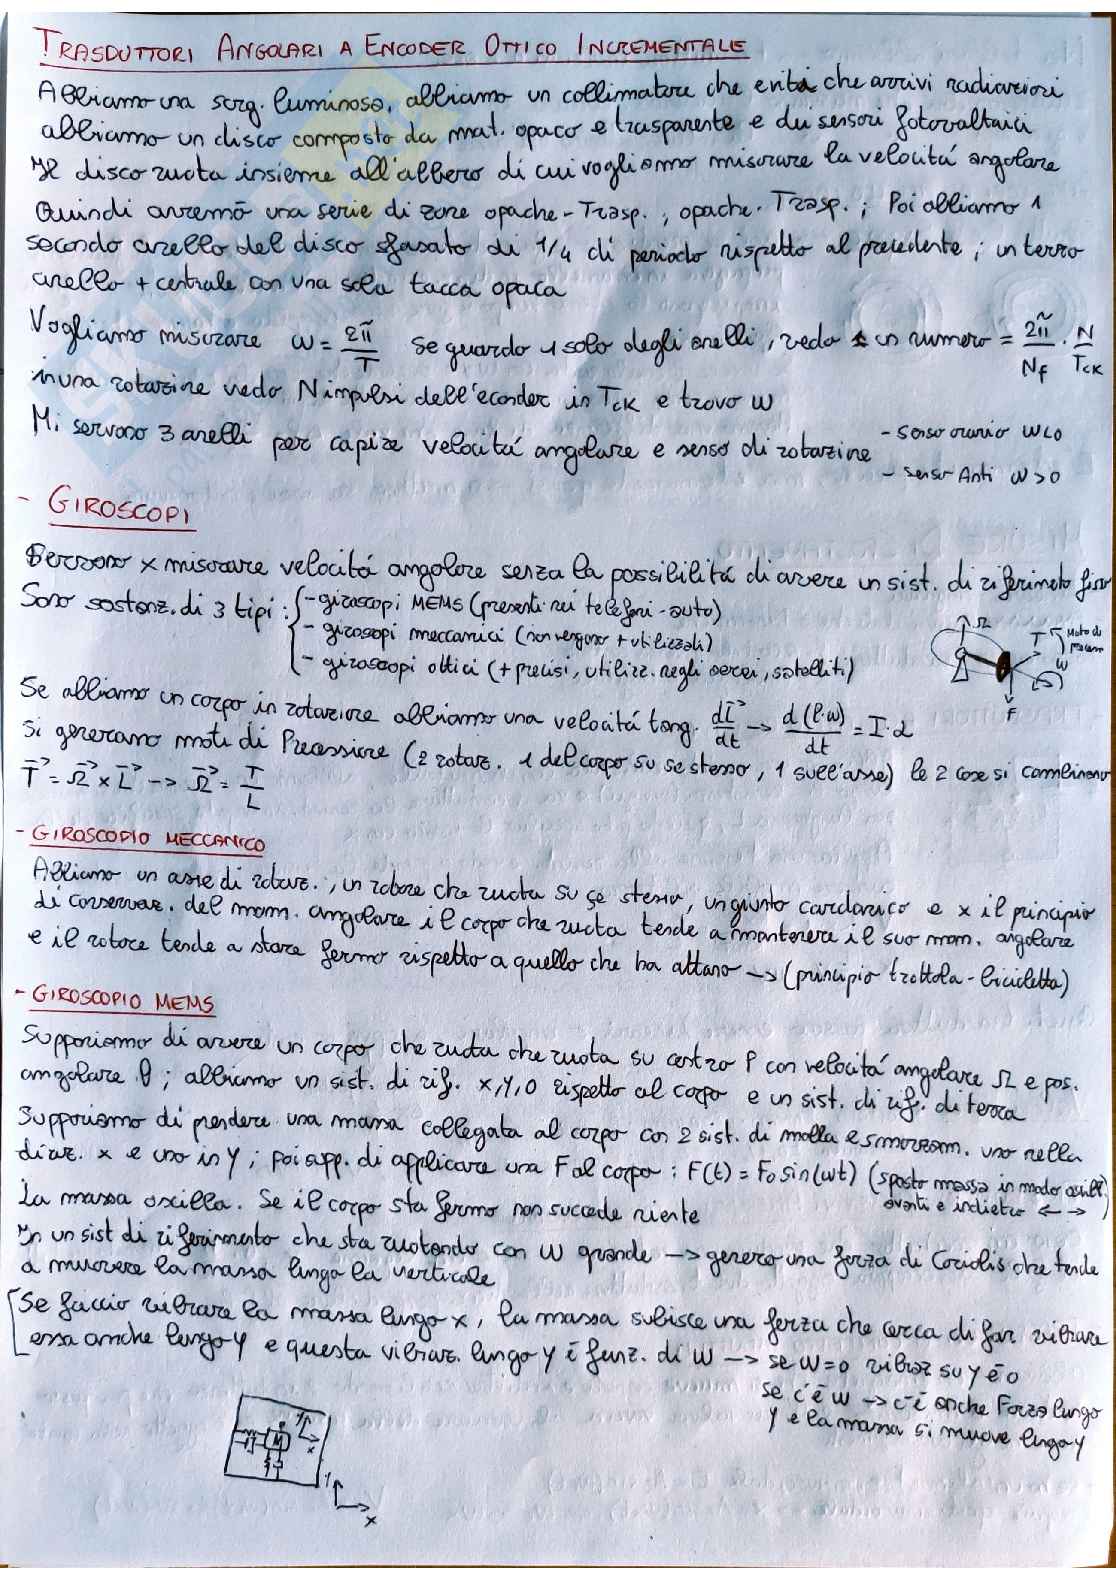 TRASDUTTORI ANGOLARI A ENCODER OTTICO INCREMENTALE
Abbiamo una sorg. luminosa, abbiamo un collimatore che evita che arrivi radiazioni
abbiamo un disco composto da mat. opaco e trasparente e dui sensori fotovoltaici
Il disco ruota insieme all'albero di cui vogliamo misurare la velocitá angolare
Quindi avremo una serie di zone opache-Trasp., opache-Trasp.; Poi abbiamo 1
secondo anello del disco sfasato di 1/4 di periodo rispetto al precedente; un terzo
anello + centrale con una sola tacca opaca
Vogliamo misurare ω = 2π/T Se guardo 1 solo degli anelli, vedo un numero = 2π/Nf · N/TCK
in una rotazione vedo N impulsi dell'econder in TCK e trovo ω
Mi servono 3 anelli per capire velocitá angolare e senso di rotazione
- senso orario ω<0
- senso Anti ω>0
- GIROSCOPI
Servono x misurare velocitá angolare senza la possibilitá di avere un sist. di riferimeto fisso
Sono sostanz. di 3 tipi:
- giroscopi MEMS (presenti nei telefoni-auto)
- giroscopi meccanici (non vengono + utilizzati)
- giroscopi ottici (+ precisi, utilizz. negli aerei, satelliti)
Ω
T
Moto di
ω
F
Se abbiamo un corpo in rotazione abbiamo una velocitá tang. dL/dt → d(l·ω)/dt = I·α
Si generano moti di Precessione (2 rotaz. 1 del corpo su se stesso, 1 sull'asse) le 2 cose si combinano
T = Ω × L → Ω = T/L
- GIROSCOPIO MECCANICO
Abbiamo un asse di rotaz., un rotore che ruota su se stesso, un giunto cardanico e x il principio
di conservaz. del mom. angolare il corpo che ruota tende a mantenere il suo mom. angolare
e il rotore tende a stare fermo rispetto a quello che ha attorno → (principio trottola-bicicletta)
- GIROSCOPIO MEMS
Supponiamo di avere un corpo che ruota che ruota su centro P con velocitá angolare Ω e pos.
angolare θ; abbiamo un sist. di rif. x,y,0 rispetto al corpo e un sist. di rif. di terra
Supponiamo di prendere una massa collegata al corpo con 2 sist. di molla e smorzam. uno nella
direz. x e uno in y; poi supp. di applicare una F al corpo: F(t) = F0 sin(ωt) (sposto massa in modo oscill.
avanti e indietro ← →)
La massa oscilla. Se il corpo sta fermo non succede niente
In un sist di riferimento che sta ruotando con ω grande → genero una forza di Coriolis che tende
a muovere la massa lungo la verticale
Se faccio vibrare la massa lungo x, la massa subisce una forza che cerca di far vibrare
essa anche lungo y e questa vibraz. lungo y é funz. di ω → se ω=0 vibraz su y é 0
se c'é ω → c'é anche Forza lungo
y e la massa si muove lungo y
M
y
x
y
x